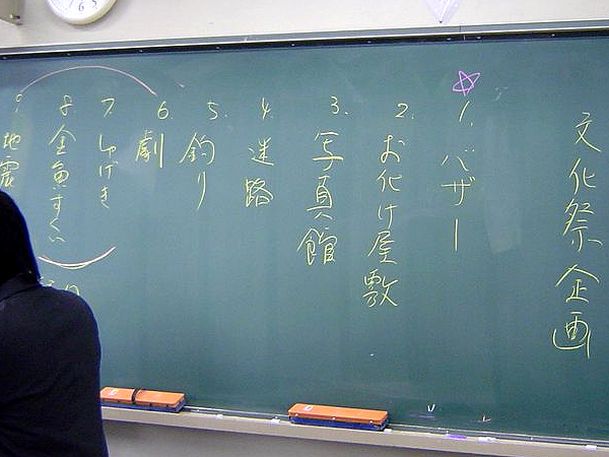 文化祭企画
1. バザー
2. お化け屋敷
3. 写真館
4. 迷路
5. 釣り
6. 劇
7. しゃげき
8. 金魚すくい
9. 地震